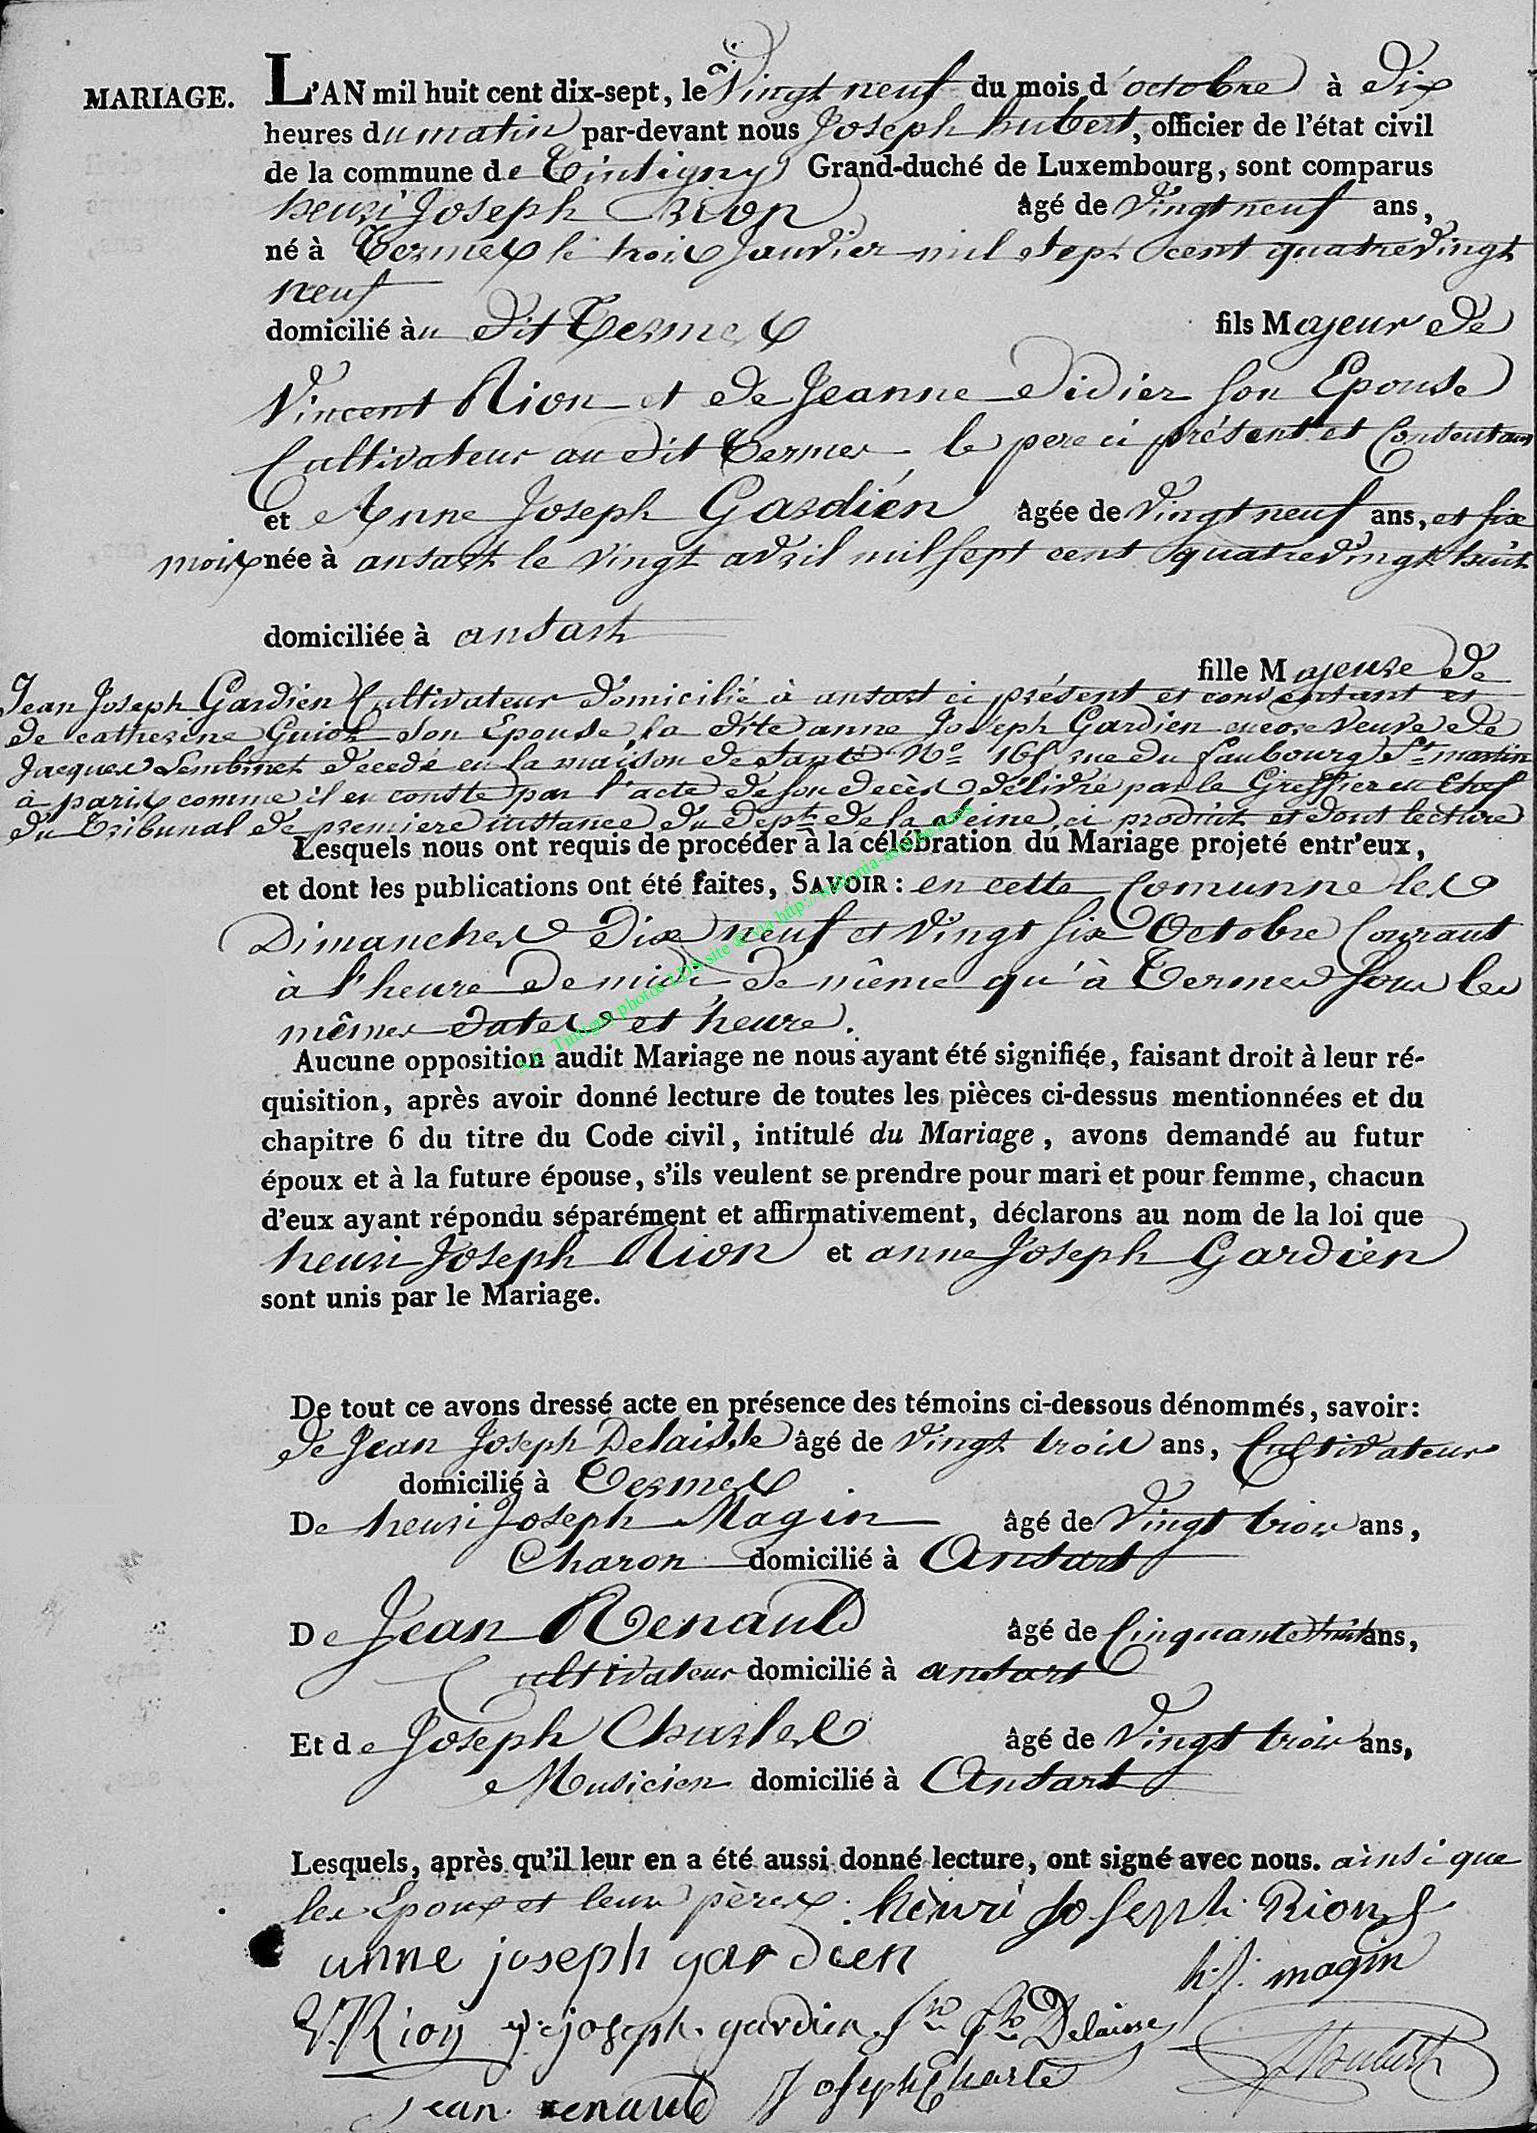 MARIAGE. L'AN mil huit cent dix-sept, le Vingt neuf du mois d'octobre à dix
heures du matin par-devant nous Joseph hubert, officier de l'état civil
de la commune de Tintigny Grand-duché de Luxembourg, sont comparus
henri Joseph Rion âgé de Vingt neuf ans,
né à Termes le trois Janvier mil sept cent quatrevingt
neuf
domicilié àu dit Termes fils Majeur de
Vincent Rion et de Jeanne Didier son Epouse
Cultivateur au dit Termes, le pere ci présent et Consentant
et Anne Joseph Gardien âgée de Vingt neuf ans, et six
mois née à ansart le Vingt avril mil sept cent quatrevingt huit
domiciliée à ansart
fille Majeure de
Jean Joseph Gardien Cultivateur domicilié à ansart ci présent et consentant et
de catherine Guiot son Epouse, la dite anne Joseph Gardien encore Veuve de
Jacques Lembinet decedé en la maison de santé No 165 rue du faubourg St martin
à paris comme il en conste par l'acte de son decès délivré par le Greffier en Chef
du Tribunal de premiere instance du Dept de la seine, ci produit et dont lecture
Lesquels nous ont requis de procéder à la célébration du Mariage projeté entr'eux,
et dont les publications ont été faites, SAVOIR : en cette Comunne les
Dimanches Dix neuf et Vingt six Octobre Courant
à l'heure de midi, de même qu'à Termes sous les
mêmes dates et heure.
Aucune opposition audit Mariage ne nous ayant été signifiée, faisant droit à leur ré-
quisition, après avoir donné lecture de toutes les pièces ci-dessus mentionnées et du
chapitre 6 du titre du Code civil, intitulé du Mariage, avons demandé au futur
époux et à la future épouse, s'ils veulent se prendre pour mari et pour femme, chacun
d'eux ayant répondu séparément et affirmativement, déclarons au nom de la loi que
henri Joseph Rion et anne Joseph Gardien
sont unis par le Mariage.
De tout ce avons dressé acte en présence des témoins ci-dessous dénommés, savoir:
de Jean Joseph Delaisse âgé de Vingt trois ans, Cultivateur
domicilié à Termes
De henri Joseph Magin âgé de Vingt trois ans,
Charon domicilié à Ansart
De Jean Renauld âgé de Cinquante huit ans,
Cultivateur domicilié à ansart
Et de Joseph Charles âgé de Vingt trois ans,
Musicien domicilié à Ansart
Lesquels, après qu'il leur en a été aussi donné lecture, ont signé avec nous. ainsi que
les Epoux et leurs pères. henri Joseph Rion
anne joseph gardien h.j. magin
V. Rion j. joseph gardien Delaisse
JHubert
Joseph Charle
jean renauld
A.C. Tintigny photos LDS site @ via http://wallonia-asbl.be actes